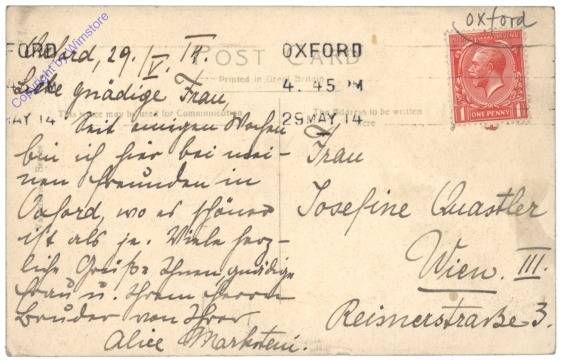 Oxford
OXFORD
4. 45 PM
29 MAY 14
OXFORD
MAY 14
ONE PENNY
1 1
POST CARD
Printed in Great Britain
This space may be used for Communication
The Address to be written
Here
Copyright by Wimstore
Oxford, 29./V. 14.
Liebe gnädige Frau,
Seit einigen Wochen
bin ich hier bei mei-
nen Freunden in
Oxford, wo es schöner
ist als je. Viele herz-
liche Grüße Ihnen gnädige
Frau u. Ihrem Herrn
Bruder von Ihrer
Alice Markstein.
Frau
Josefine Quastler
Wien. III.
Reisnerstraße 3.